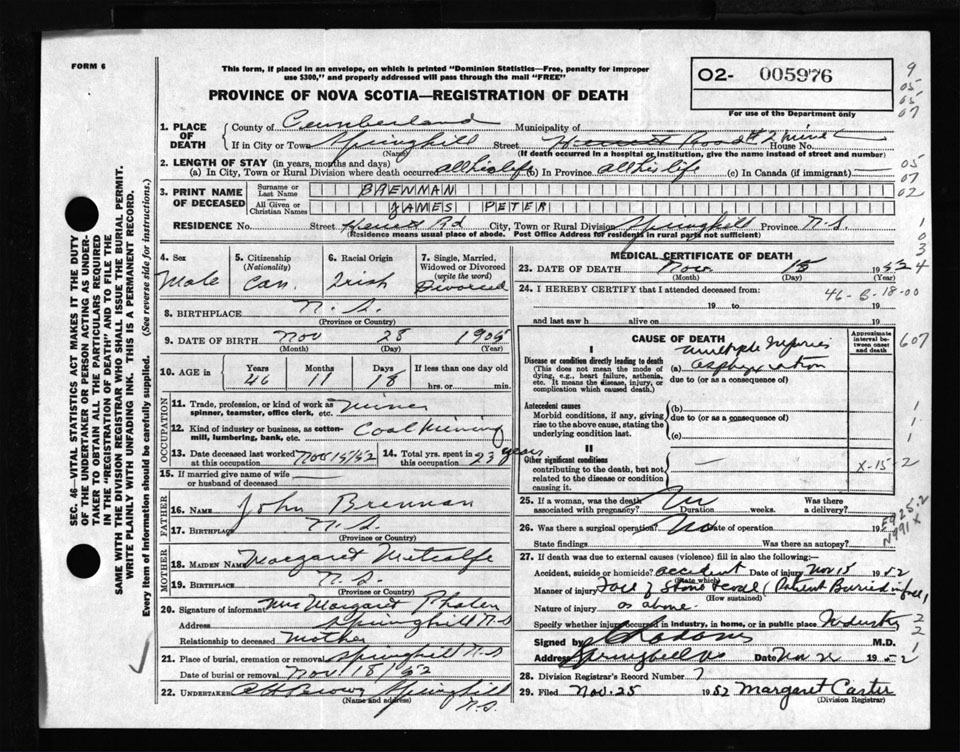 FORM 6
This form, if placed in an envelope, on which is printed "Dominion Statistics—Free, penalty for improper
use $300," and properly addressed will pass through the mail "FREE"
PROVINCE OF NOVA SCOTIA—REGISTRATION OF DEATH
02- 005976
For use of the Department only
SEC. 46—VITAL STATISTICS ACT MAKES IT THE DUTY
OF THE UNDERTAKER OR PERSON ACTING AS UNDER-
TAKER TO OBTAIN ALL THE PARTICULARS REQUIRED
IN THE "REGISTRATION OF DEATH" AND TO FILE THE
SAME WITH THE DIVISION REGISTRAR WHO SHALL ISSUE THE BURIAL PERMIT.
WRITE PLAINLY WITH UNFADING INK. THIS IS A PERMANENT RECORD.
Every item of Information should be carefully supplied. (See reverse side for instructions.)
1. PLACE OF DEATH
County of Cumberland Municipality of
If in City or Town Springhill Street Road #2 mine House No.
(Name) (If death occurred in a hospital or institution, give the name instead of street and number)
2. LENGTH OF STAY (in years, months and days)
(a) In City, Town or Rural Division where death occurred all his life (b) In Province all his life (c) In Canada (if immigrant) —
3. PRINT NAME OF DECEASED
Surname or Last Name BRENNAN
All Given or Christian Names JAMES PETER
RESIDENCE No. Street Rd City, Town or Rural Division Springhill Province N.S.
(Residence means usual place of abode. Post Office Address for residents in rural parts not sufficient)
4. Sex
Male
5. Citizenship
(Nationality)
Can.
6. Racial Origin
Irish
7. Single, Married, Widowed or Divorced
(write the word)
Divorced
8. BIRTHPLACE N.S.
(Province or Country)
9. DATE OF BIRTH Nov 28 1905
(Month) (Day) (Year)
10. AGE in Years Months Days If less than one day
46 11 18 hrs. or min.
OCCUPATION
11. Trade, profession, or kind of work as
spinner, teamster, office clerk, etc. miner
12. Kind of industry or business, as cotton-
mill, lumbering, bank, etc. Coal Mining
13. Date deceased last worked at this occupation Nov 15/52
14. Total yrs. spent in this occupation 23 years
15. If married give name of wife
or husband of deceased
FATHER
16. Name John Brennan
17. Birthplace N.S.
(Province or Country)
MOTHER
18. MAIDEN NAME Margaret Metcalfe
19. BIRTHPLACE N.S.
(Province or Country)
20. Signature of informant Mrs Margaret Phalen
Address Springhill N.S
Relationship to deceased mother
21. Place of burial, cremation or removal Springhill N.S
Date of burial or removal Nov 18/52
22. UNDERTAKER Brown Springhill
(Name and address) N.S.
MEDICAL CERTIFICATE OF DEATH
23. DATE OF DEATH Nov. 15 1952
(Month) (Day) (Year)
24. I HEREBY CERTIFY that I attended deceased from:
19 to 19
and last saw h alive on 19
46-B-18-00
CAUSE OF DEATH
Approximate interval between onset and death
I
Disease or condition directly leading to death
(This does not mean the mode of dying, e.g., heart failure, asthenia, etc. It means the disease, injury, or complication which caused death.)
multiple injuries
(a) asphyxiation
due to (or as a consequence of)
Antecedent causes
Morbid conditions, if any, giving rise to the above cause, stating the underlying condition last.
(b)
due to (or as a consequence of)
(c)
II
Other significant conditions
contributing to the death, but not related to the disease or condition causing it.
—
X-15-2
25. If a woman, was the death associated with pregnancy? Duration weeks. Was there a delivery?
26. Was there a surgical operation? No Date of operation 19
State findings Was there an autopsy?
27. If death was due to external causes (violence) fill in also the following:—
Accident, suicide or homicide? accident Date of injury Nov 15 1952
(State which)
Manner of injury Fall of Stone & coal (Patient Buried in fall)
(How sustained)
Nature of injury as above.
Specify whether injury occurred in industry, in home, or in public place Industry
Signed by M.D.
Address Springhill NS Date Nov 1952
28. Division Registrar's Record Number 7
29. Filed Nov. 25 1952 Margaret Carter
(Division Registrar)
9
05
05
07
05
07
02
1
0
3
4
607
1
1
1
E925.2
N991 X
2
2
1
2